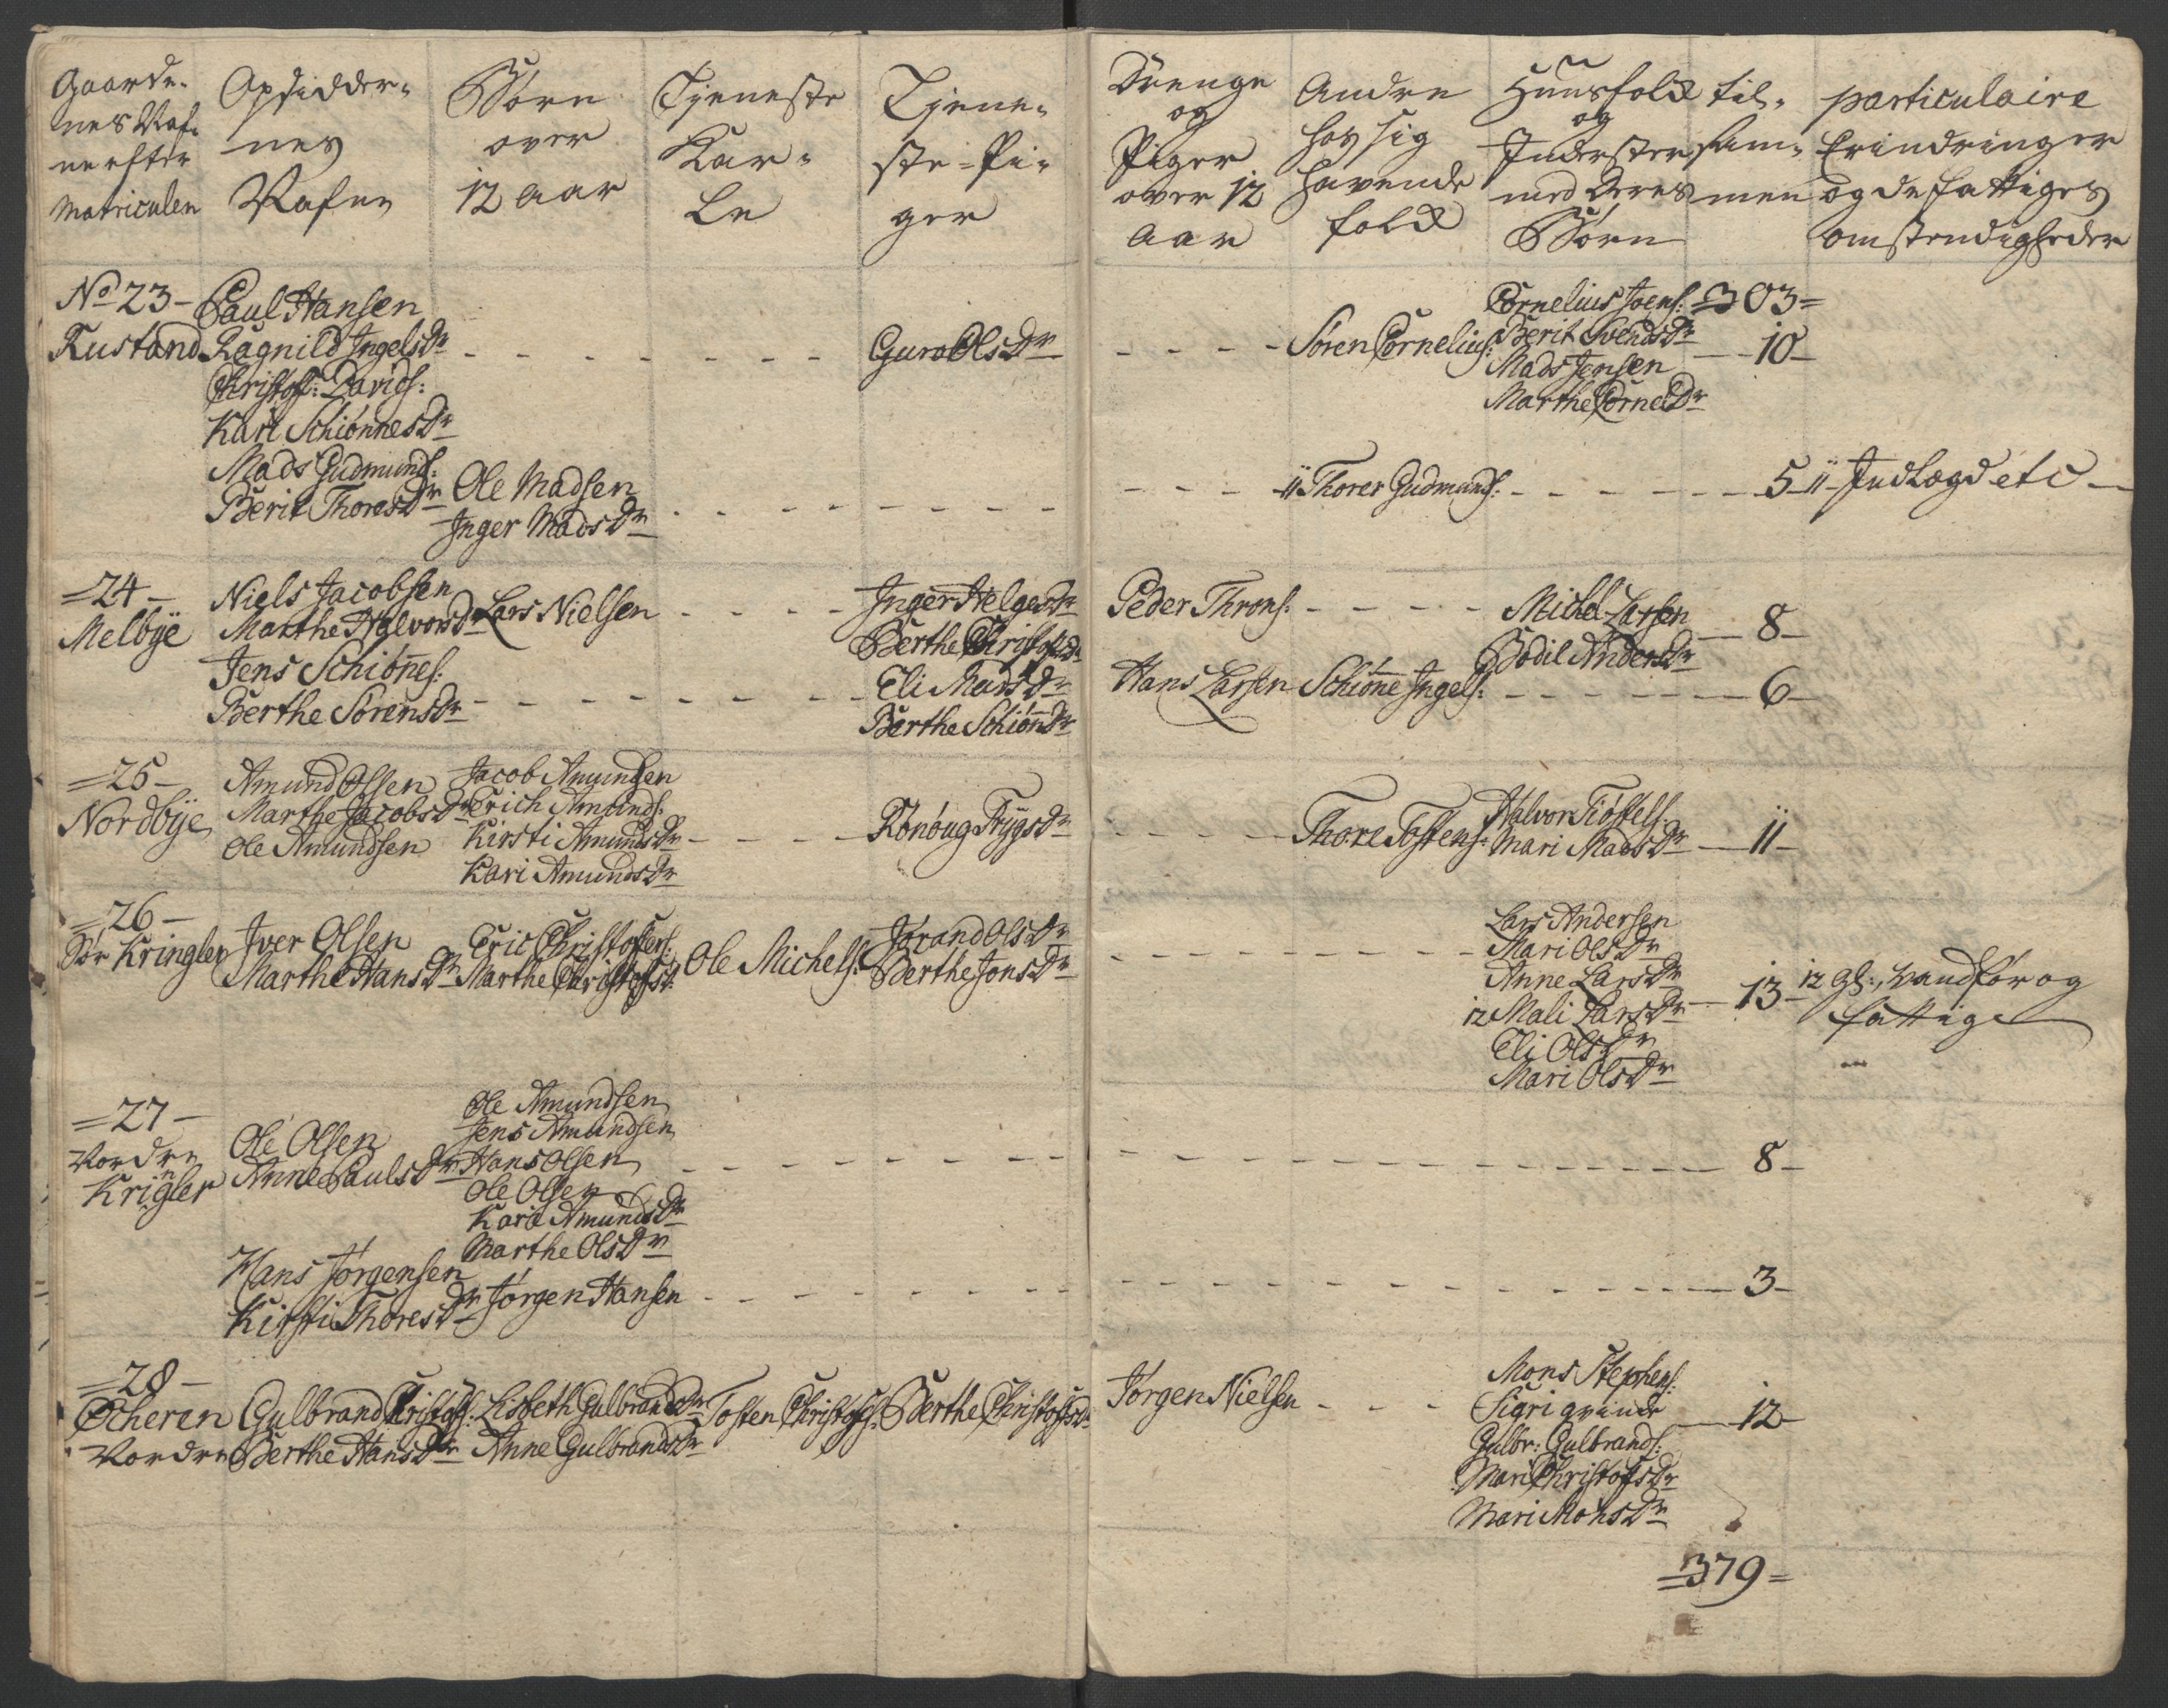 Gaarde-
nes Naf-
ne efter
Matriculen
Opsidder-
nes
Nafne
Børn
over
12 aar
Tjeneste
Kar-
le
Tjene-
ste-Pi-
ger
Drenge
og
Piger
over 12
aar
Andre
hos sig
havende
folk
Huusfolk
og
Inderster
med deres
Børn
til-
sam-
men
particulaire
Erindringer
og de fattiges
omstendigheder
No 23-
Rustand
Paul Hansen
Ragnild IngelsDr
Christoff: Davids:
Kari SchiónnesDr
Mads Gudmunds:
Berit ThoresDr
Ole Madsen
Inger MadsDr
Guro OlsDr
Sóren Cornelius:
Cornelius Joens:
Berit SvendsDr
Mads Jensen
Marthe CornelDr
=303=
10-
11 Thorer Gudmunds:
5-
11-Indlagd etc-
=24-
Melbÿe
Niels Jacobsen
Marthe HalvorsDr
Jens Schiónnes:
Berthe SórensDr
Lars Nielsen
Inger HelgesDr
Berthe ChristoffDr
Eli MadsDr
Berthe SchiónDr
Peder Throns:
Hans Larsen
Schiónne Ingels:
Michel Larsen
Bodil AndersDr
8-
6-
=25-
Nordbÿe
Amund Olsen
Marthe JacobsDr
Ole Amundsen
Jacob Amundsen
Erich Amunds:
Kirsti AmundsDr
Kari AmundsDr
Rónoug TrÿgsDr
Thore Tostens:
Halvor Kióstels:
Mari MadsDr
11-
=26-
Sór Kringler
Iver Olsen
Marthe HansDr
Eric Christofers:
Marthe ChristoffsD:
Ole Michels:
Jórand OlsDr
Berthe JonsDr
Lars Andersen
Mari OlsDr
Anne LarsDr
12 Mali LarsDr
Eli OlsDr
Mari OlsDr
13-
12 gl:, vanfór og
fattig
=27-
Nordre
Kringler
Ole Olsen
Anne PaulsDr
Ole Amundsen
Jens Amundsen
Hans Olsen
Ole Olsen
Kari AmundsDr
Marthe OlsDr
8-
Hans Jórgensen
Kirsti ThoresDr
Jórgen Hansen
3-
=28-
Ócheren
Nordre
Gulbrand Christoff:
Berthe HansDr
Lisbeth GulbrandsDr
Anne GulbrandsDr
Tosten Christoffs:
Berthe ChristoffersDr
Jórgen Nielsen
Mons Stephens:
Sigri qvinde
Gulbr: Gulbrands:
Mari ChristoffsDr
Mari MonsDr
12-
=379=